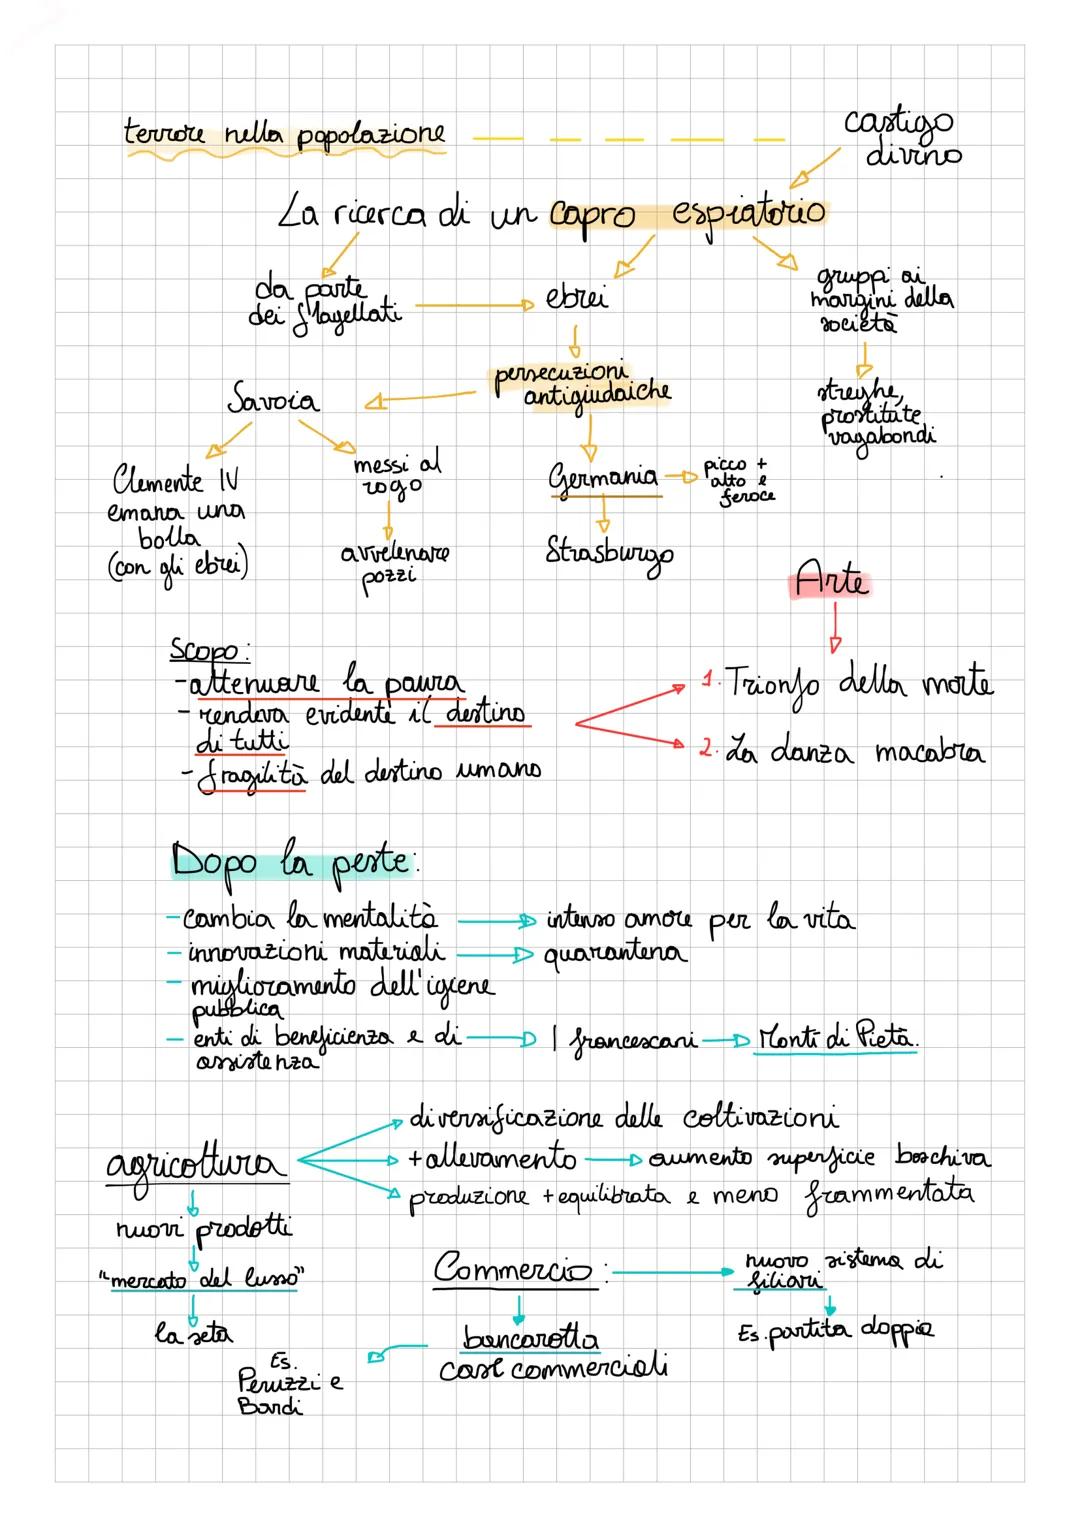 terrore nella popolazione
castigo
divino
La ricerca di un capro espiatorio
da parte
dei flagellati
ebrei
gruppi ai
margini della
società
persecuzioni
antigiudaiche
Savoia
streghe,
prostitute
vagabondi
Clemente IV
emana una
bolla
(con gli ebrei)
messi al
rogo
avvelenare
pozzi
Germania
picco +
alto e
feroce
Strasburgo
Arte
Scopo:
-attenuare la paura
- rendeva evidente il destino
di tutti
- fragilità del destino umano
1. Trionfo della morte
2. La danza macabra
Dopo la peste:
-cambia la mentalità
intenso amore per la vita
- innovazioni materiali
quarantena
- miglioramento dell'igiene
pubblica
- enti di beneficienza e di
assistenza
I francescani
Monti di Pietà.
agricoltura
diversificazione delle coltivazioni
+allevamento
aumento superficie boschiva
produzione +equilibrata e meno frammentata
nuovi prodotti
"mercato del lusso"
la seta
Commercio:
nuovo sistema di
filiari
Es. partita doppia
bancarotta
case commerciali
Es.
Peruzzi e
Bardi